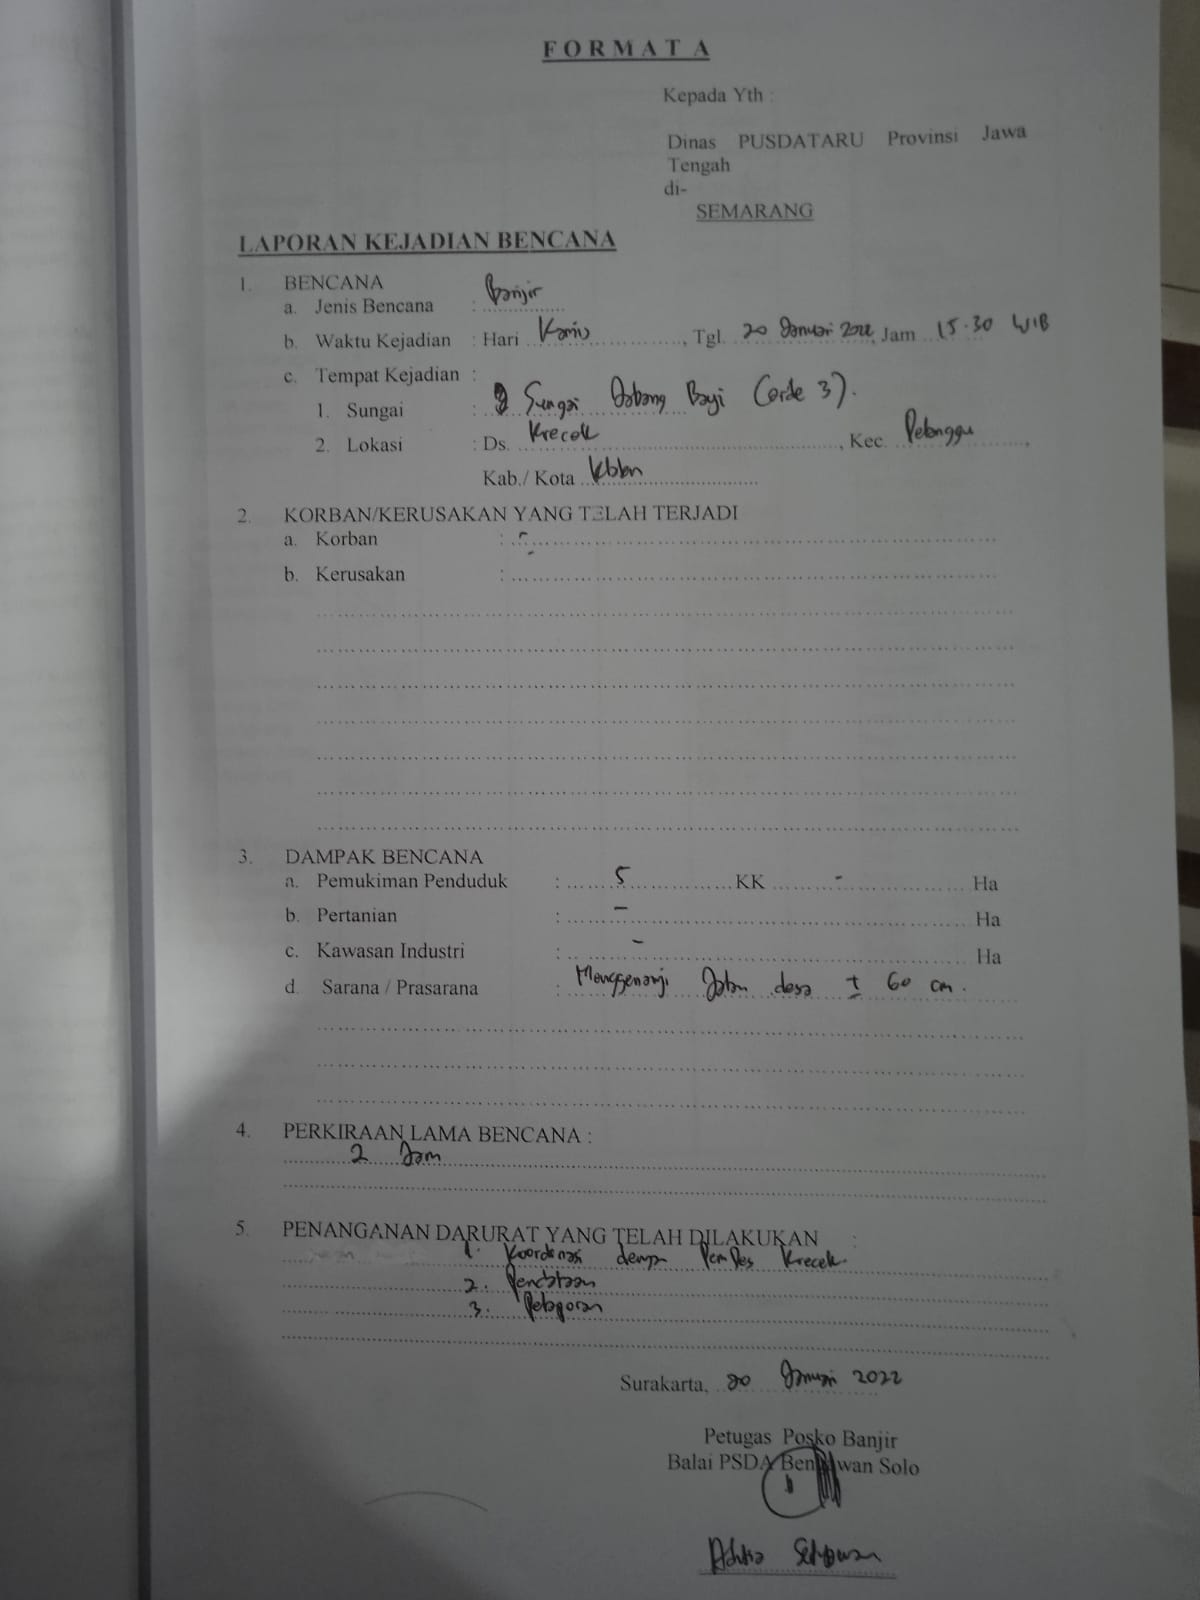 FORMAT A
Kepada Yth :
Dinas PUSDATARU Provinsi Jawa
Tengah
di-
SEMARANG
LAPORAN KEJADIAN BENCANA
1. BENCANA
a. Jenis Bencana : Banjir
b. Waktu Kejadian : Hari Kamis, Tgl. 20 Januari 2022, Jam 15.30 WIB
c. Tempat Kejadian :
1. Sungai : Sungai Bayi (orde 3).
2. Lokasi : Ds. Krecek, Kec.
Kab./ Kota
2. KORBAN/KERUSAKAN YANG TELAH TERJADI
a. Korban : -
b. Kerusakan :
3. DAMPAK BENCANA
a. Pemukiman Penduduk : 5 KK - Ha
b. Pertanian : - Ha
c. Kawasan Industri : - Ha
d. Sarana / Prasarana : Menggenangi Jalan desa ± 60 cm.
4. PERKIRAAN LAMA BENCANA :
2 Jam
5. PENANGANAN DARURAT YANG TELAH DILAKUKAN :
1. Koordinasi dengan PemDes Krecek.
2. Pendataan
3. Pelaporan
Surakarta, 20 Januari 2022
Petugas Posko Banjir
Balai PSDA Bengawan Solo
Setyawan